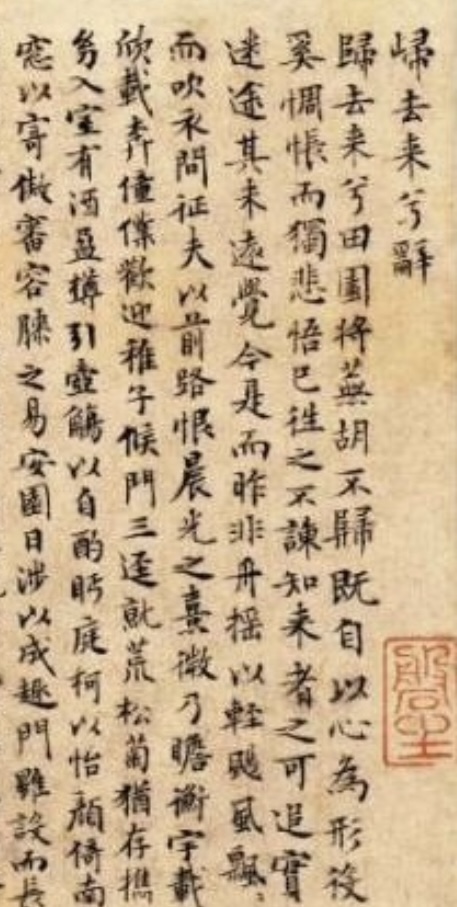 歸去来兮辭
歸去来兮田園将蕪胡不歸既自以心為形役
奚惆悵而獨悲悟已往之不諫知来者之可追實
迷途其未遠覺今是而昨非舟摇以輕颺風飄〻
而吹衣問征夫以前路恨晨光之熹微乃瞻衡宇載
欣載奔僮僕歡迎稚子候門三逕就荒松菊猶存攜
幼入室有酒盈樽引壺觴以自酌眄庭柯以怡顔倚南
窓以寄傲審容膝之易安園日涉以成趣門雖設而長